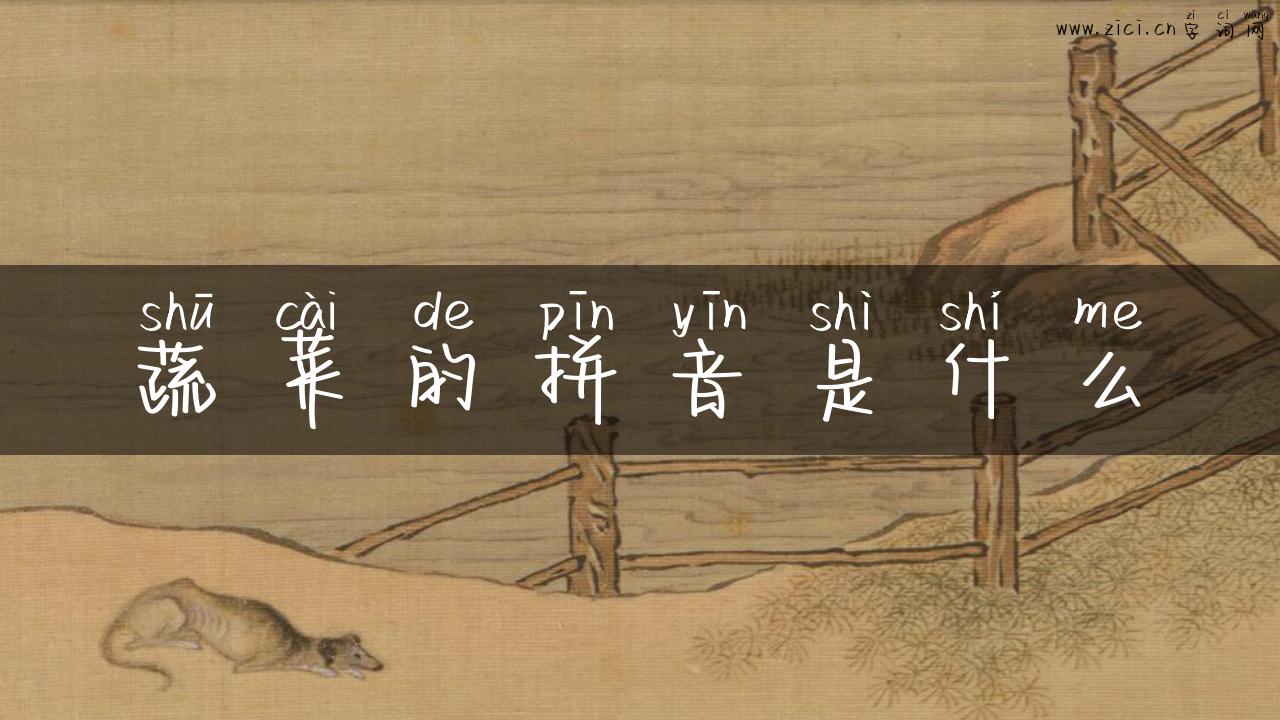 zì cí wǎng
www.zici.cn 字词网
shū cài de pīn yīn shì shí me
蔬菜的拼音是什么